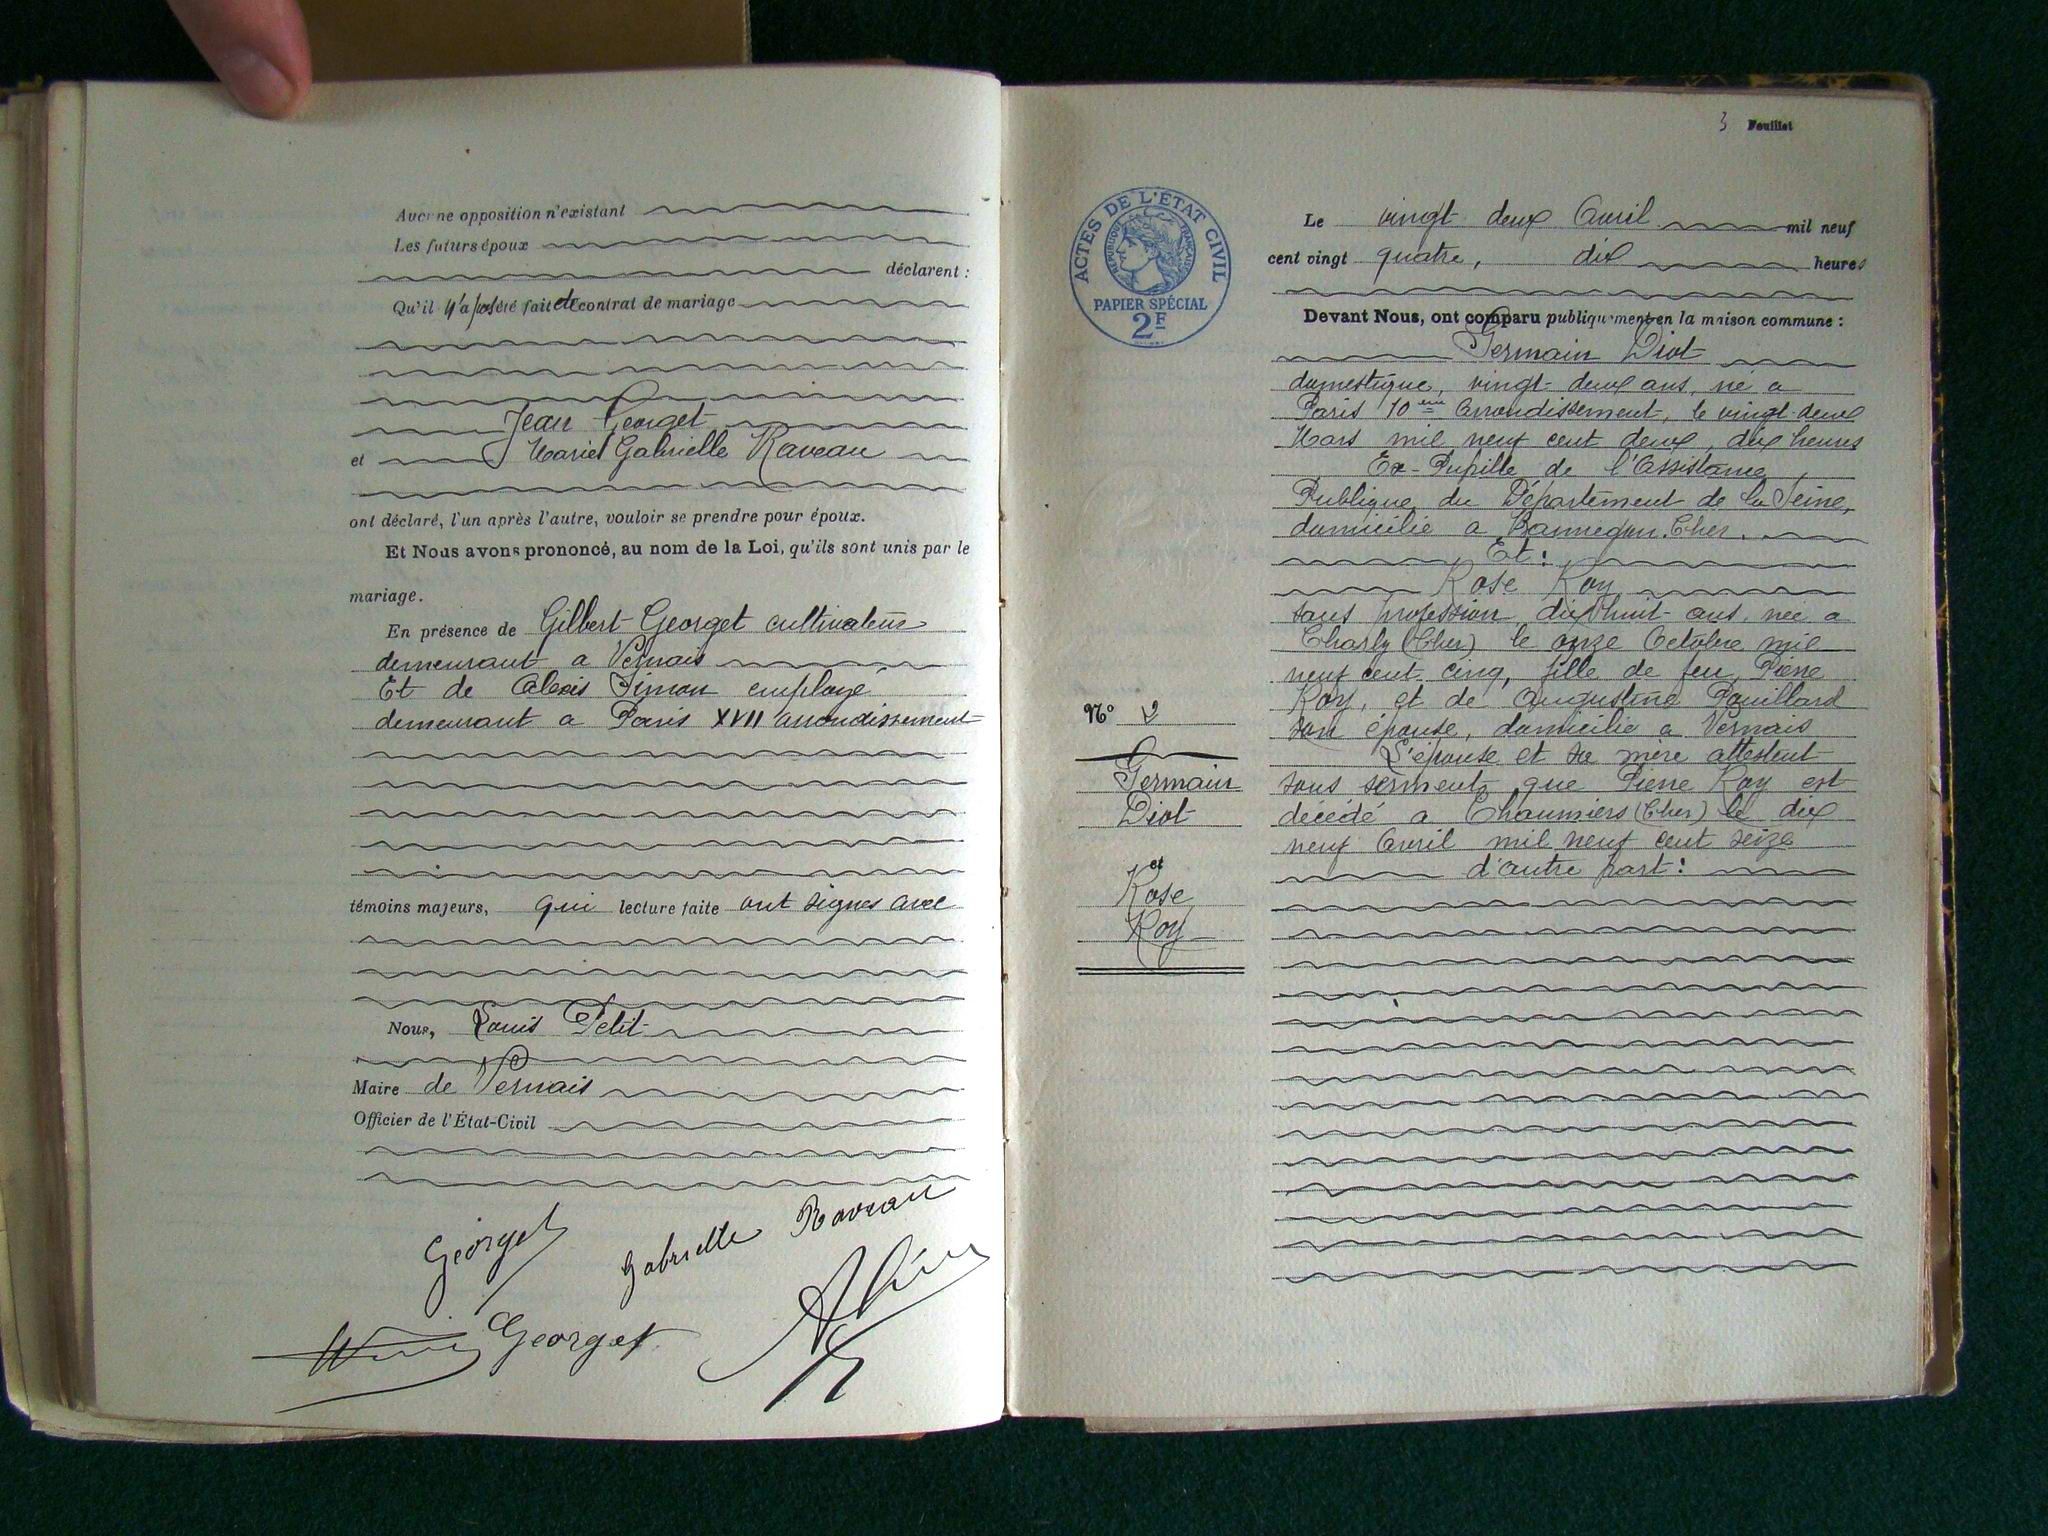 Aucune opposition n'existant
Les futurs époux
déclarent :
Qu'il n'a pas été fait de contrat de mariage
Jean Georget
et Marie Gabrielle Raveau
ont déclaré, l'un après l'autre, vouloir se prendre pour époux.
Et Nous avons prononcé, au nom de la Loi, qu'ils sont unis par le
mariage.
En présence de Gilbert Georget cultivateur
demeurant a Vernais
Et de Alexis Simon employé
demeurant a Paris XVII arrondissement
témoins majeurs, qui lecture faite ont signés avec
Nous, Louis Petit
Maire de Vernais
Officier de l'État-Civil
Georget
Gabrielle Raveau
Georget
3 Feuillet
ACTES DE L'ÉTAT CIVIL
RÉPUBLIQUE FRANÇAISE
PAPIER SPÉCIAL
2F
Le vingt deux Avril mil neuf
cent vingt quatre, dix heures
Devant Nous, ont comparu publiquement en la maison commune :
Germain Diot
domestique, vingt-deux ans, né a
Paris 10ème Arrondissement, le vingt deux
Mars mil neuf cent deux, dix heures
Ex-Pupille de l'Assistance
Publique du Département de la Seine,
domicilié a Bannegon. Cher.
Et :
Rose Roy
sans profession dix huit ans, née a
Charly (Cher) le onze Octobre mil
neuf cent cinq, fille de feu Pierre
Roy, et de Augustine Pouillard
son épouse, domicilié a Vernais
L'épouse et sa mère attestent
sous serment, que Pierre Roy est
décédé a Chaumiers (Cher) le dix
neuf Avril mil neuf cent seize
d'autre part :
No 2
Germain
Diot
et
Rose
Roy